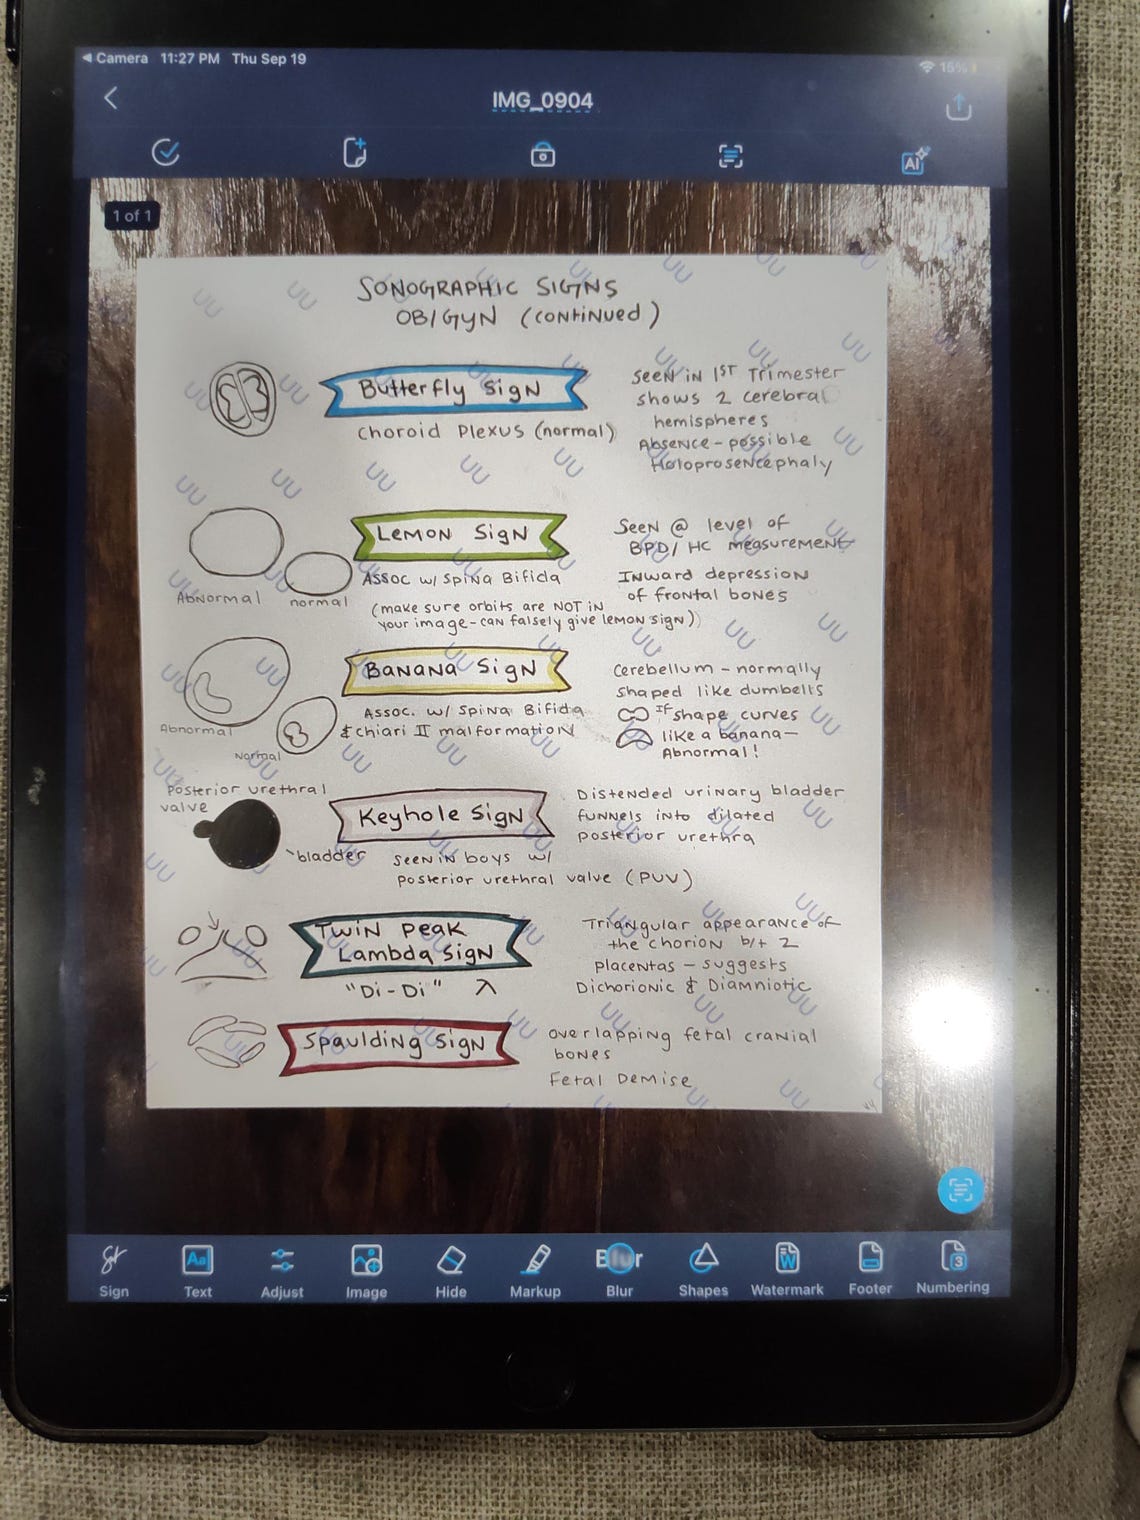 Camera 11:27 PM Thu Sep 19
15%
IMG_0904
AI
1 of 1
SONOGRAPHIC SIGNS
OB/GYN (continued)
Butterfly Sign
Choroid Plexus (normal)
Seen in 1st Trimester
shows 2 cerebral
hemispheres
Absence - possible
Holoprosencephaly
Lemon Sign
Abnormal
normal
Assoc w/ Spina Bifida
(make sure orbits are NOT in
your image - can falsely give lemon sign)
Seen @ level of
BPD/HC measurement
Inward depression
of frontal bones
Banana Sign
Abnormal
Normal
Assoc. w/ Spina Bifida
& chiari II malformation
Cerebellum - normally
shaped like dumbells
If shape curves
like a banana -
Abnormal!
Posterior urethral
valve
bladder
Keyhole Sign
seen in boys w/
posterior urethral valve (PUV)
Distended urinary bladder
funnels into dilated
posterior urethra
Twin Peak
Lambda Sign
"Di-Di" λ
Triangular appearance of
the chorion b/t 2
placentas - suggests
Dichorionic & Diamniotic
Spaulding Sign
overlapping fetal cranial
bones
Fetal Demise
Sign
Aa
Text
Adjust
Image
Hide
Markup
Blur
Blur
Shapes
W
Watermark
Footer
3
Numbering